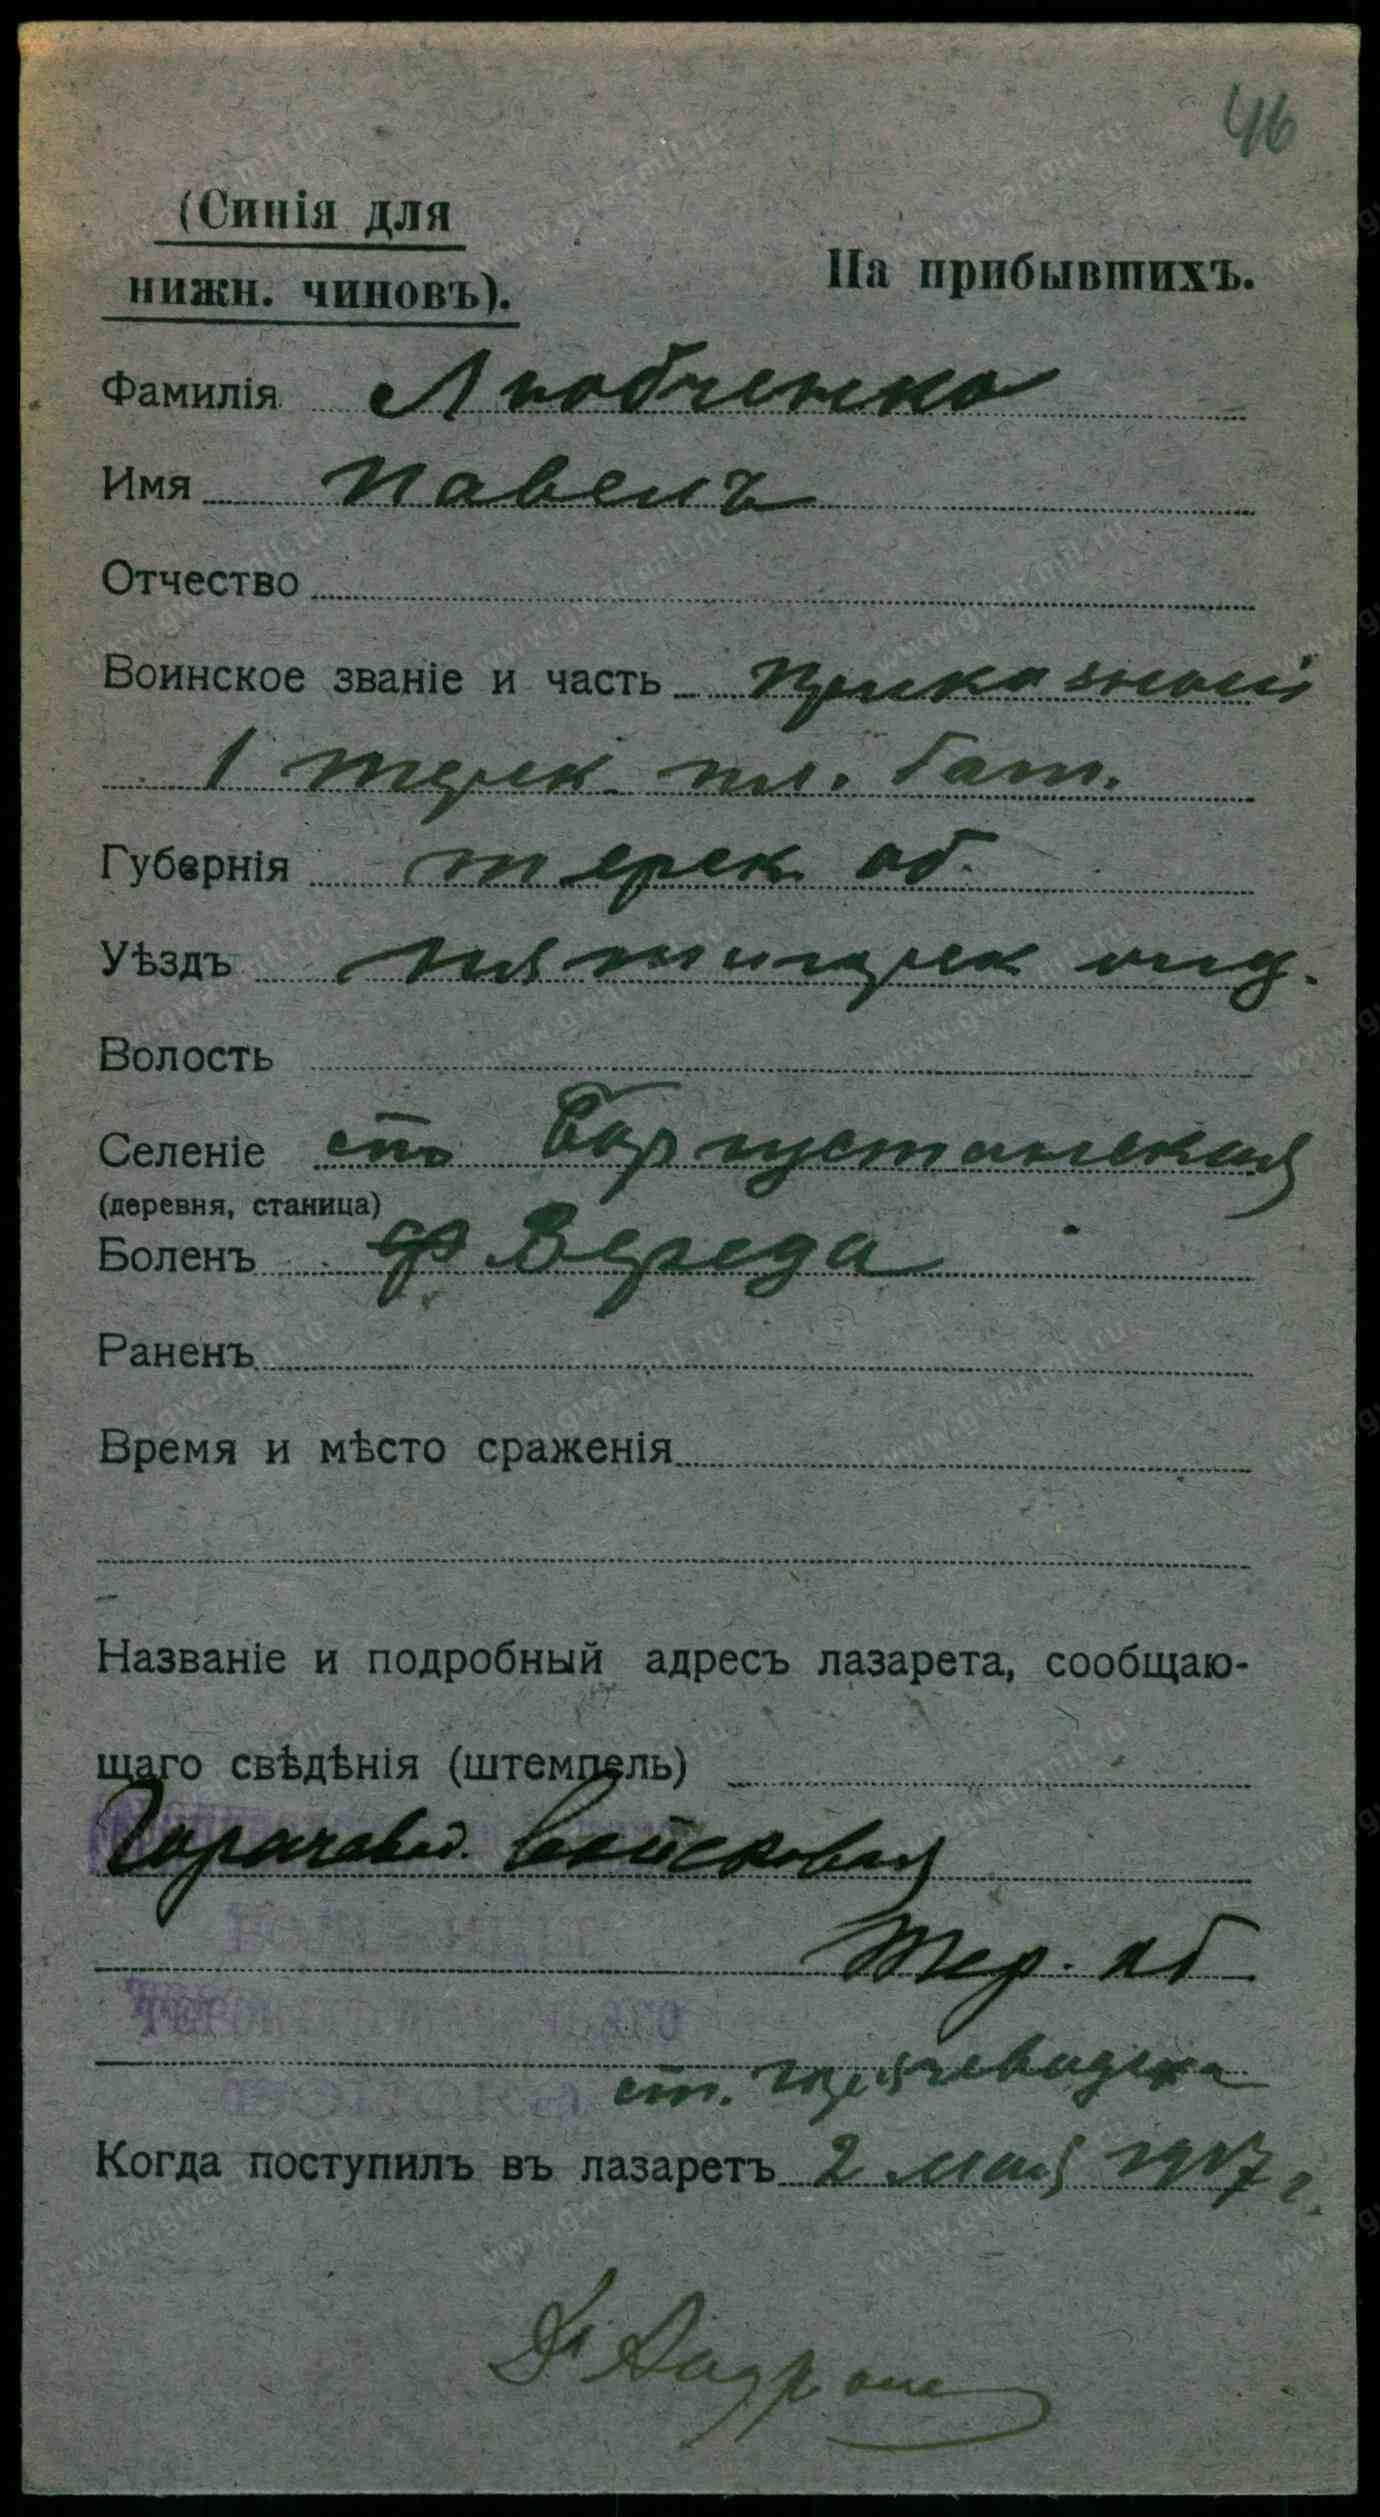 46
(Синія для
нижн. чиновъ).
На прибывшихъ.
Фамилія Любченко
Имя Павелъ
Отчество
Воинское званіе и часть приказный
1 терек. пл. бат.
Губернія терек. об.
Уѣздъ пятигорск отд.
Волость
Селеніе ст. Боргустанская
(деревня, станица)
Боленъ Вереда
Раненъ
Время и мѣсто сраженія
Названіе и подробный адресъ лазарета, сообщаю-
щаго свѣдѣнія (штемпель)
Горячевод. Войсковая
Тер. об
ст. Горячеводска
Когда поступилъ въ лазаретъ 2 мая 1917 г.